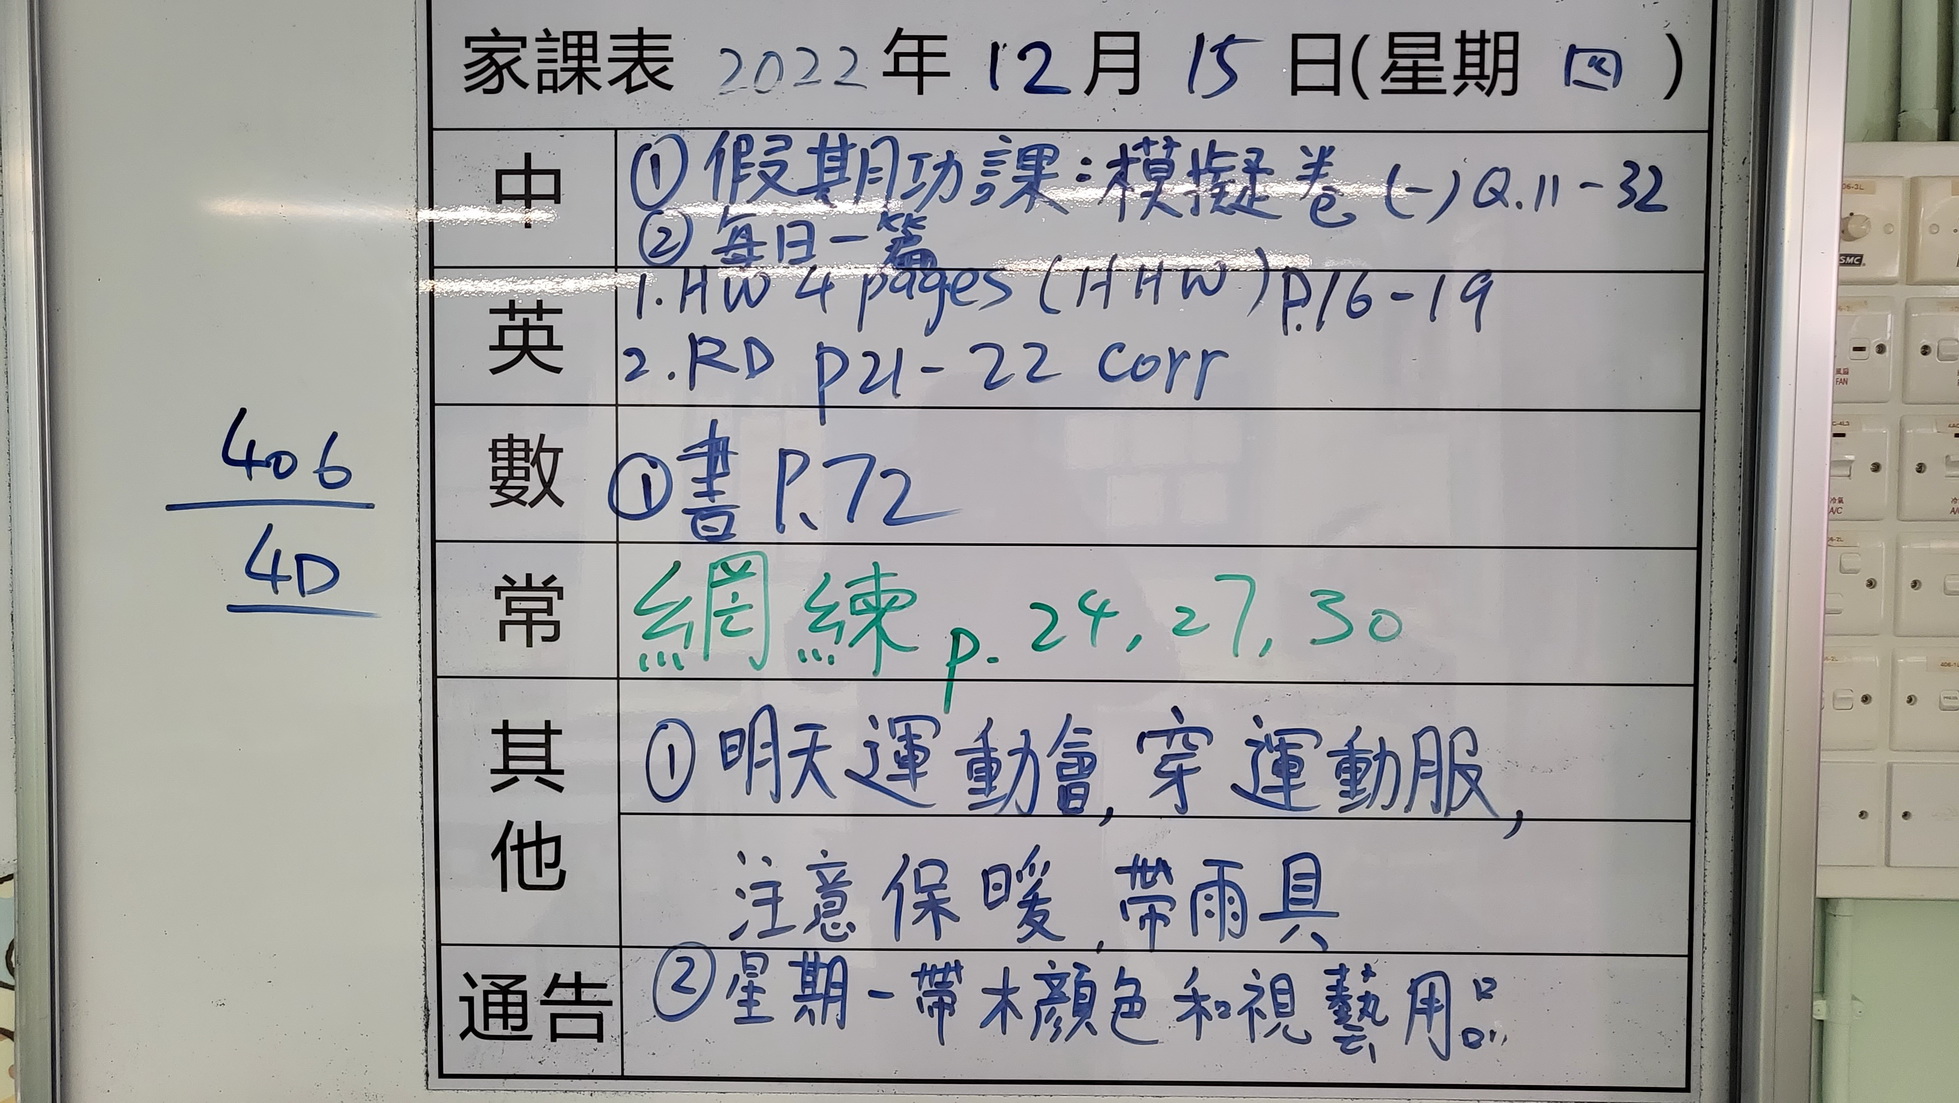 家課表 2022年 12月 15日(星期 四)
中
①假期功課:模擬卷(一)Q.11-32
②每日一篇
英
1.HW 4 pages (HHW) P.16-19
2.RD p21-22 corr
數
①書 P.72
常
網練 p. 24, 27, 30
其他
①明天運動會,穿運動服,
注意保暖,帶雨具
通告
②星期一帶木顏色和視藝用品
406
4D
SMC
FAN
A/C